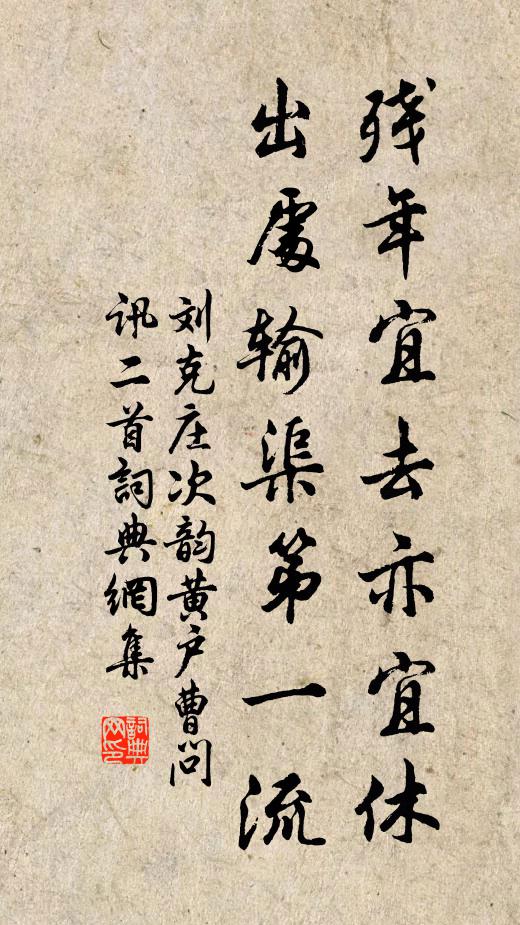 残年宜去亦宜休
出處输渠第一流
刘克庄次韵黄户曹问
讯二首詞典網集
詞典
网印